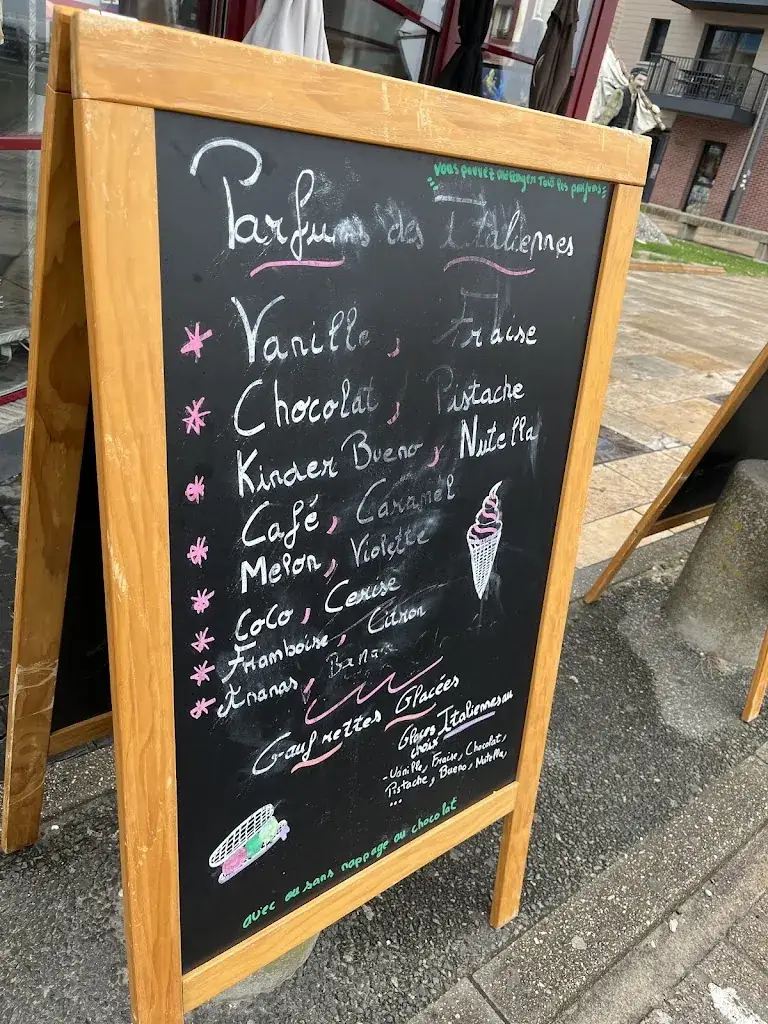 vous pouvez mélanger tout les parfums
Parfums des Italiennes
* Vanille, Fraise
* Chocolat, Pistache
* Kinder Bueno, Nutella
* Café, Caramel
* Melon, Violette
* Coco, Cerise
* Framboise, Citron
* Ananas, Banane
Gaufrettes Glacées
Glaces Italiennes au
choix
- Vanille, Fraise, Chocolat,
Pistache, Bueno, Nutella
...
avec ou sans nappage au chocolat